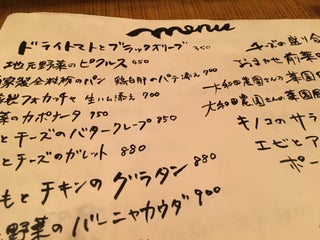 menu
ドライトマトとブラックオリーブ 350
地元野菜のピクルス 450
家製全粒粉のパン 鶏白肝のパテ添え 700
製フォカッチャ 生ハム添え 700
菜のカポナータ 750
とチーズのバタークレープ 850
とチーズのガレット 880
もとチキンのグラタン 880
野菜のバーニャカウダ 900
チーズの盛り合
おまかせ前菜の
大和田農園さんの葉園
大和田農園さんの菜園風
キノコのサラ
エビとア
ポー